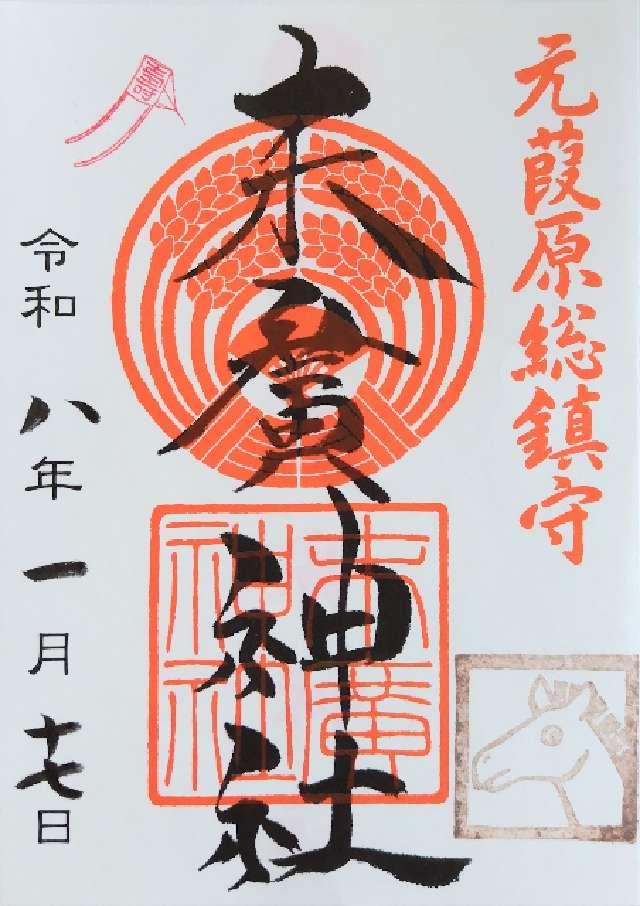 元葭原総鎮守
末廣神社
末廣神社
令和八年一月十七日